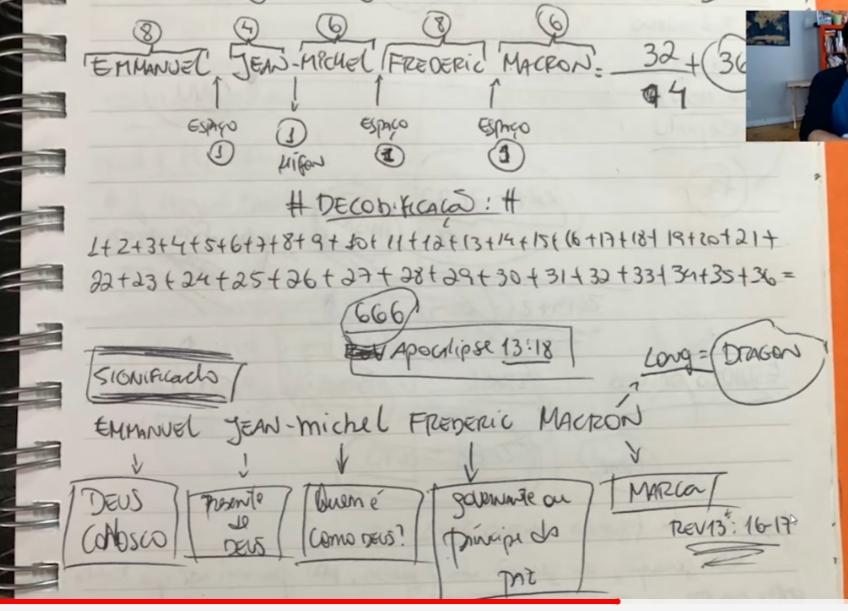 8 4 6 8 6
EMMANUEL JEAN-MICHEL FREDERIC MACRON = 32/4 + 36
ESPAÇO 1
1 Hífen
ESPAÇO 1
ESPAÇO 1
# DECODIFICAÇÃO: #
1+2+3+4+5+6+7+8+9+10+11+12+13+14+15+16+17+18+19+20+21+
22+23+24+25+26+27+28+29+30+31+32+33+34+35+36=
666
Apocalipse 13:18
Long = DRAGON
SIGNIFICADO
EMMANUEL JEAN-michel FREDERIC MACRON
DEUS CONOSCO
Presente de DEUS
Quem é como DEUS?
governante ou príncipe da paz
MARCA
REV 13: 16-17